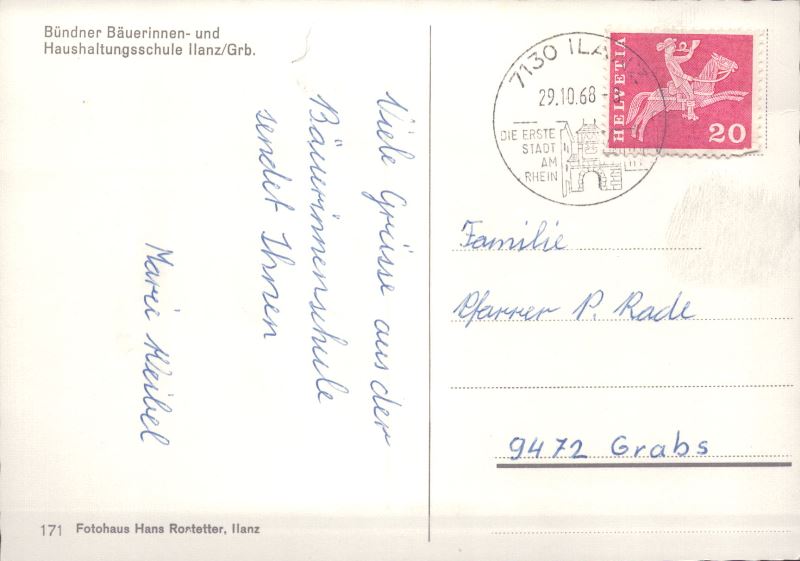 Bündner Bäuerinnen- und
Haushaltungsschule Ilanz/Grb.
Viele Grüsse aus der
Bäuerinnenschule
sendet Ihnen
Marie Weibel
171 Fotohaus Hans Rostetter, Ilanz
7130 ILANZ
29.10.68
DIE ERSTE
STADT
AM
RHEIN
HELVETIA
20
Familie
Pfarrer P. Rade
9472 Grabs